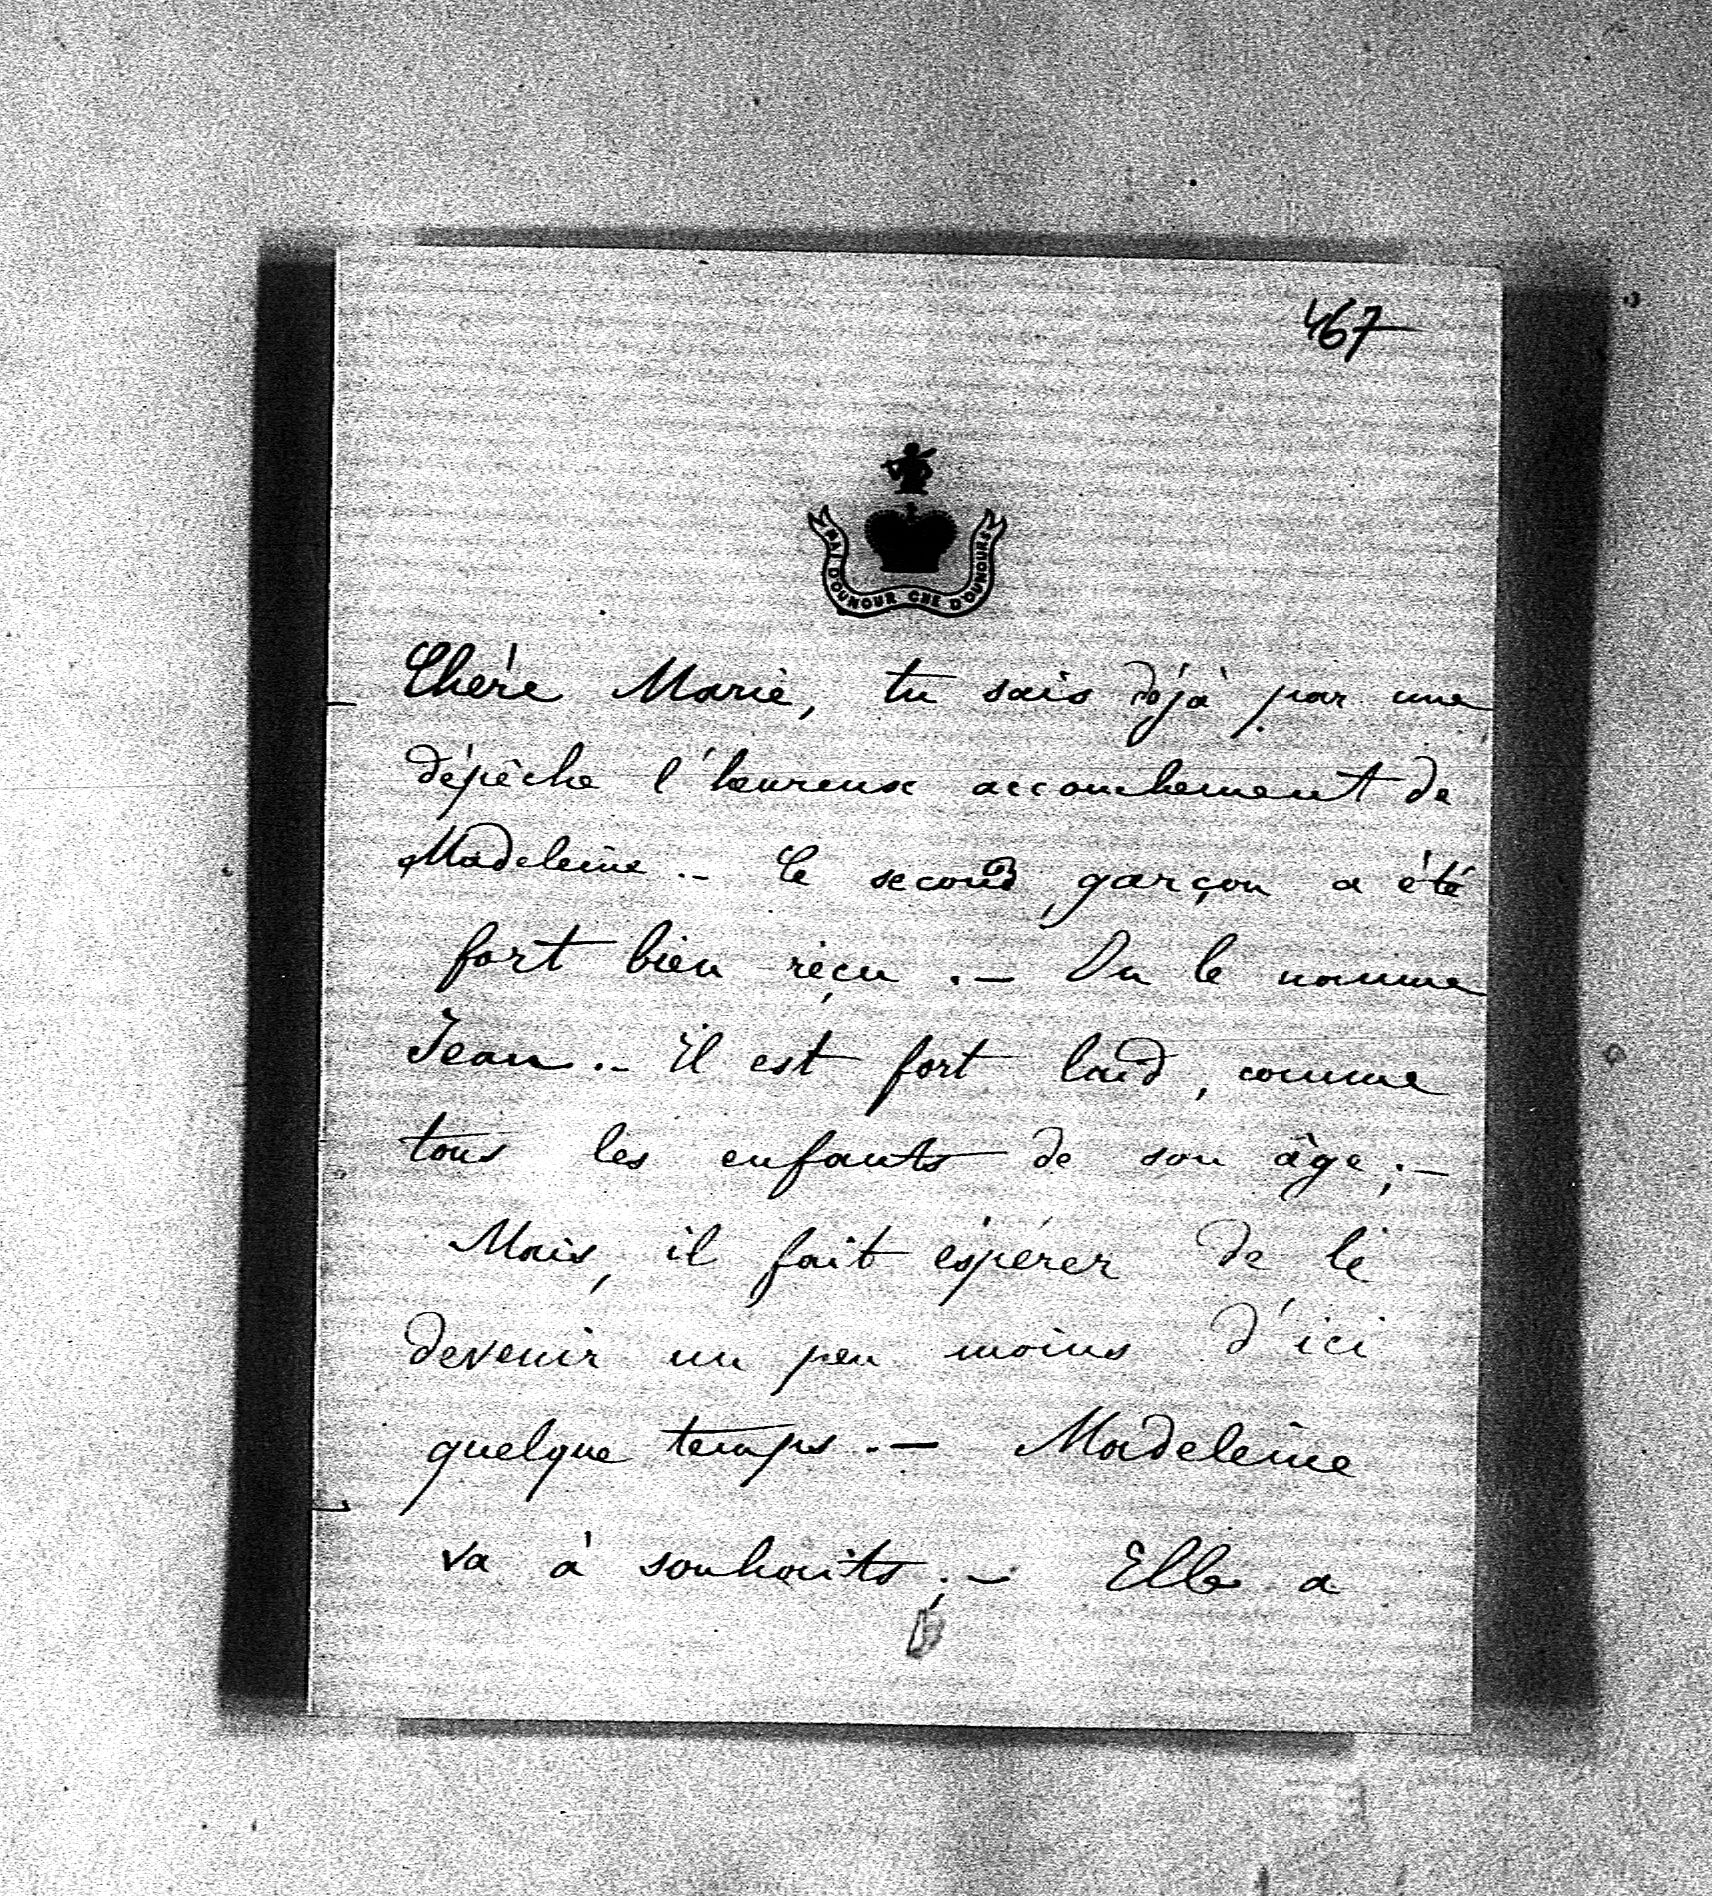 467
PAI D'OUNOUR CHE D'OUNOURS
Chère Marie, tu sais déjà par une
dépêche l'heureux accouchement de
Madeleine .- Ce second garçon a été
fort bien reçu .- On le nomme
Jean .- Il est fort laid, comme
tous les enfants de son âge ;-
Mais, il fait espérer de le
devenir un peu moins d'ici
quelque temps .- Madeleine
va à souhaits ;- Elle a